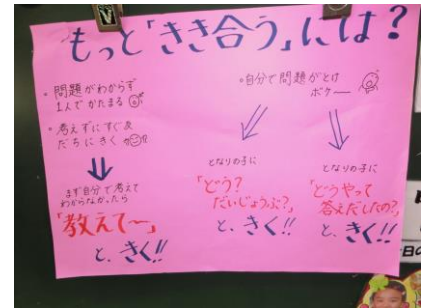 もっと「きき合う」には？
・問題がわからず
1人でかたまる
・考えずにすぐ友
だちにきく
まず自分で考えて
わからなかったら
「教えて～」
と、きく!!
・自分で問題がとけ
ボケー
となりの子に
「どう？
だいじょうぶ？」
と、きく!!
となりの子に
「どうやって
答えだしたの？」
と、きく!!